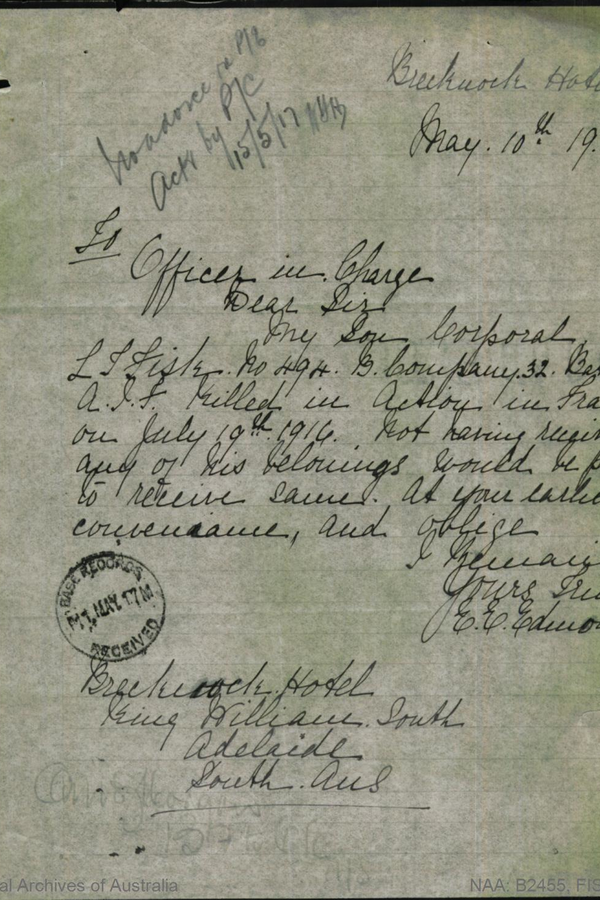 Acks by P/C
15/5/17
Brecknock Hote
May. 10th 19
To
Officer in. Charge
Dear Sir
My Son Corporal
L S Fisk. No 494. B. Company. 32. Ba
A.I.F. Killed in Action in Fra
on July 19th 1916. Not having
any of his belonings would be p
to receive same. At your earlie
convenianme, and oblige
I Remain
Yours Tru
E.E. Edmo
BASE RECORDS
MAY.17
RECEIVED
Brecknock. Hotel
King William. South
Adelaide
South. Aus
al Archives of Australia
NAA: B2455, FIS